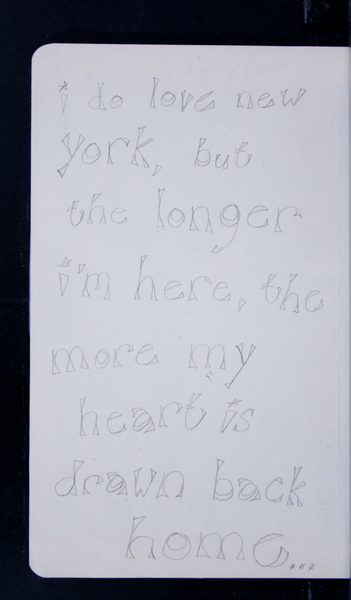 i do love new
york, but
the longer
i'm here, the
more my
heart is
drawn back
home...